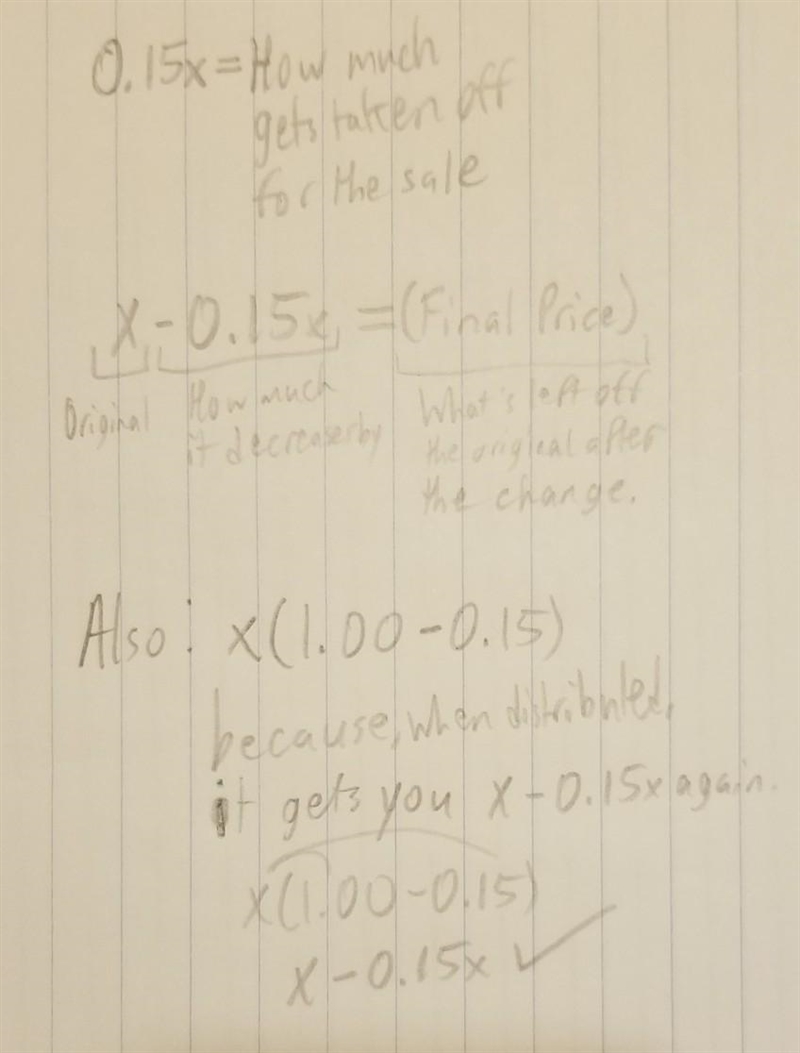 0.15x = How much
gets taken off
for the sale
x - 0.15x = (Final Price)
Original How much What's left off
it decreases by the original after
the change.
Also: x(1.00 - 0.15)
because, when distributed,
it gets you x - 0.15x again.
x(1.00 - 0.15)
x - 0.15x ✓